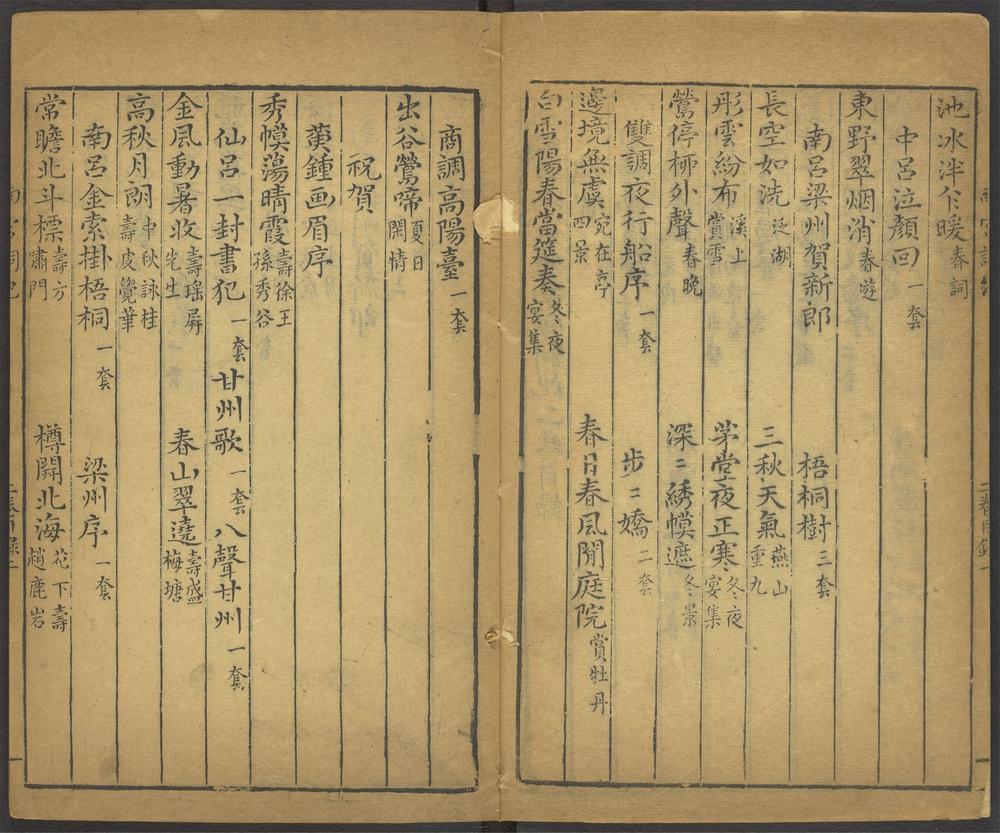 池冰泮乍暖春詞
中呂泣顏回一套
東野翠烟消春遊
南呂梁州賀新郎 梧桐樹三套
長空如洗泛湖 三秋天氣燕山重九
彤雲紛布溪上賞雪 苐堂夜正寒冬夜宴集
鶯停桺外聲春晚 深〻綉幙遮冬景
雙調夜行船序一套 步〻嬌二套
邊境無虞宛在亭四景 春日春風閒庭院賞牡丹
白雪陽春當筵奏冬夜宴集
二卷目錄一
商調高陽臺一套
出谷鶯啼夏日閑情
祝賀
黄鍾画眉序
秀幙蕩晴霞壽徐王孫秀谷
仙呂一封書犯一套 甘州歌一套 八聲甘州一套
金風動暑收壽瑶屏先生 春山翠遶壽盛梅塘
高秋月朗中秋詠桂壽皮覺華
南呂金索掛梧桐一套 梁州序一套
常瞻北斗標壽方肅門 樽開北海花下壽趙鹿岩